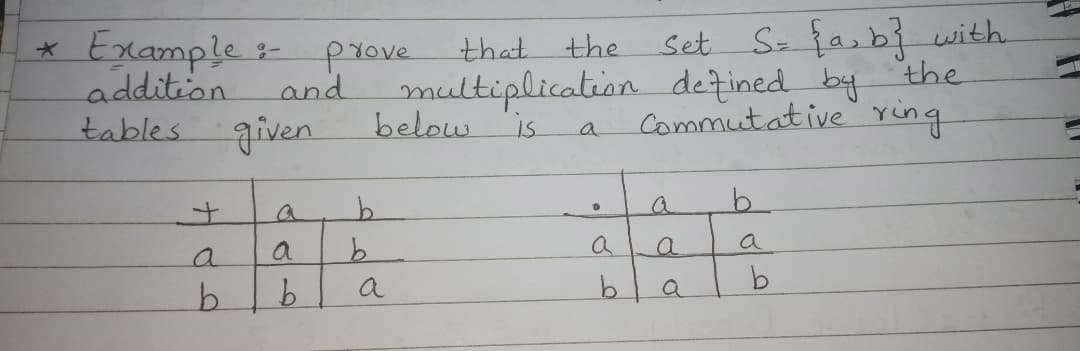 * Example :- prove that the set S = {a, b} with
addition and multiplication defined by the
tables given below is a Commutative ring
+ a b
a a b
b b a
• a b
a a a
b a b